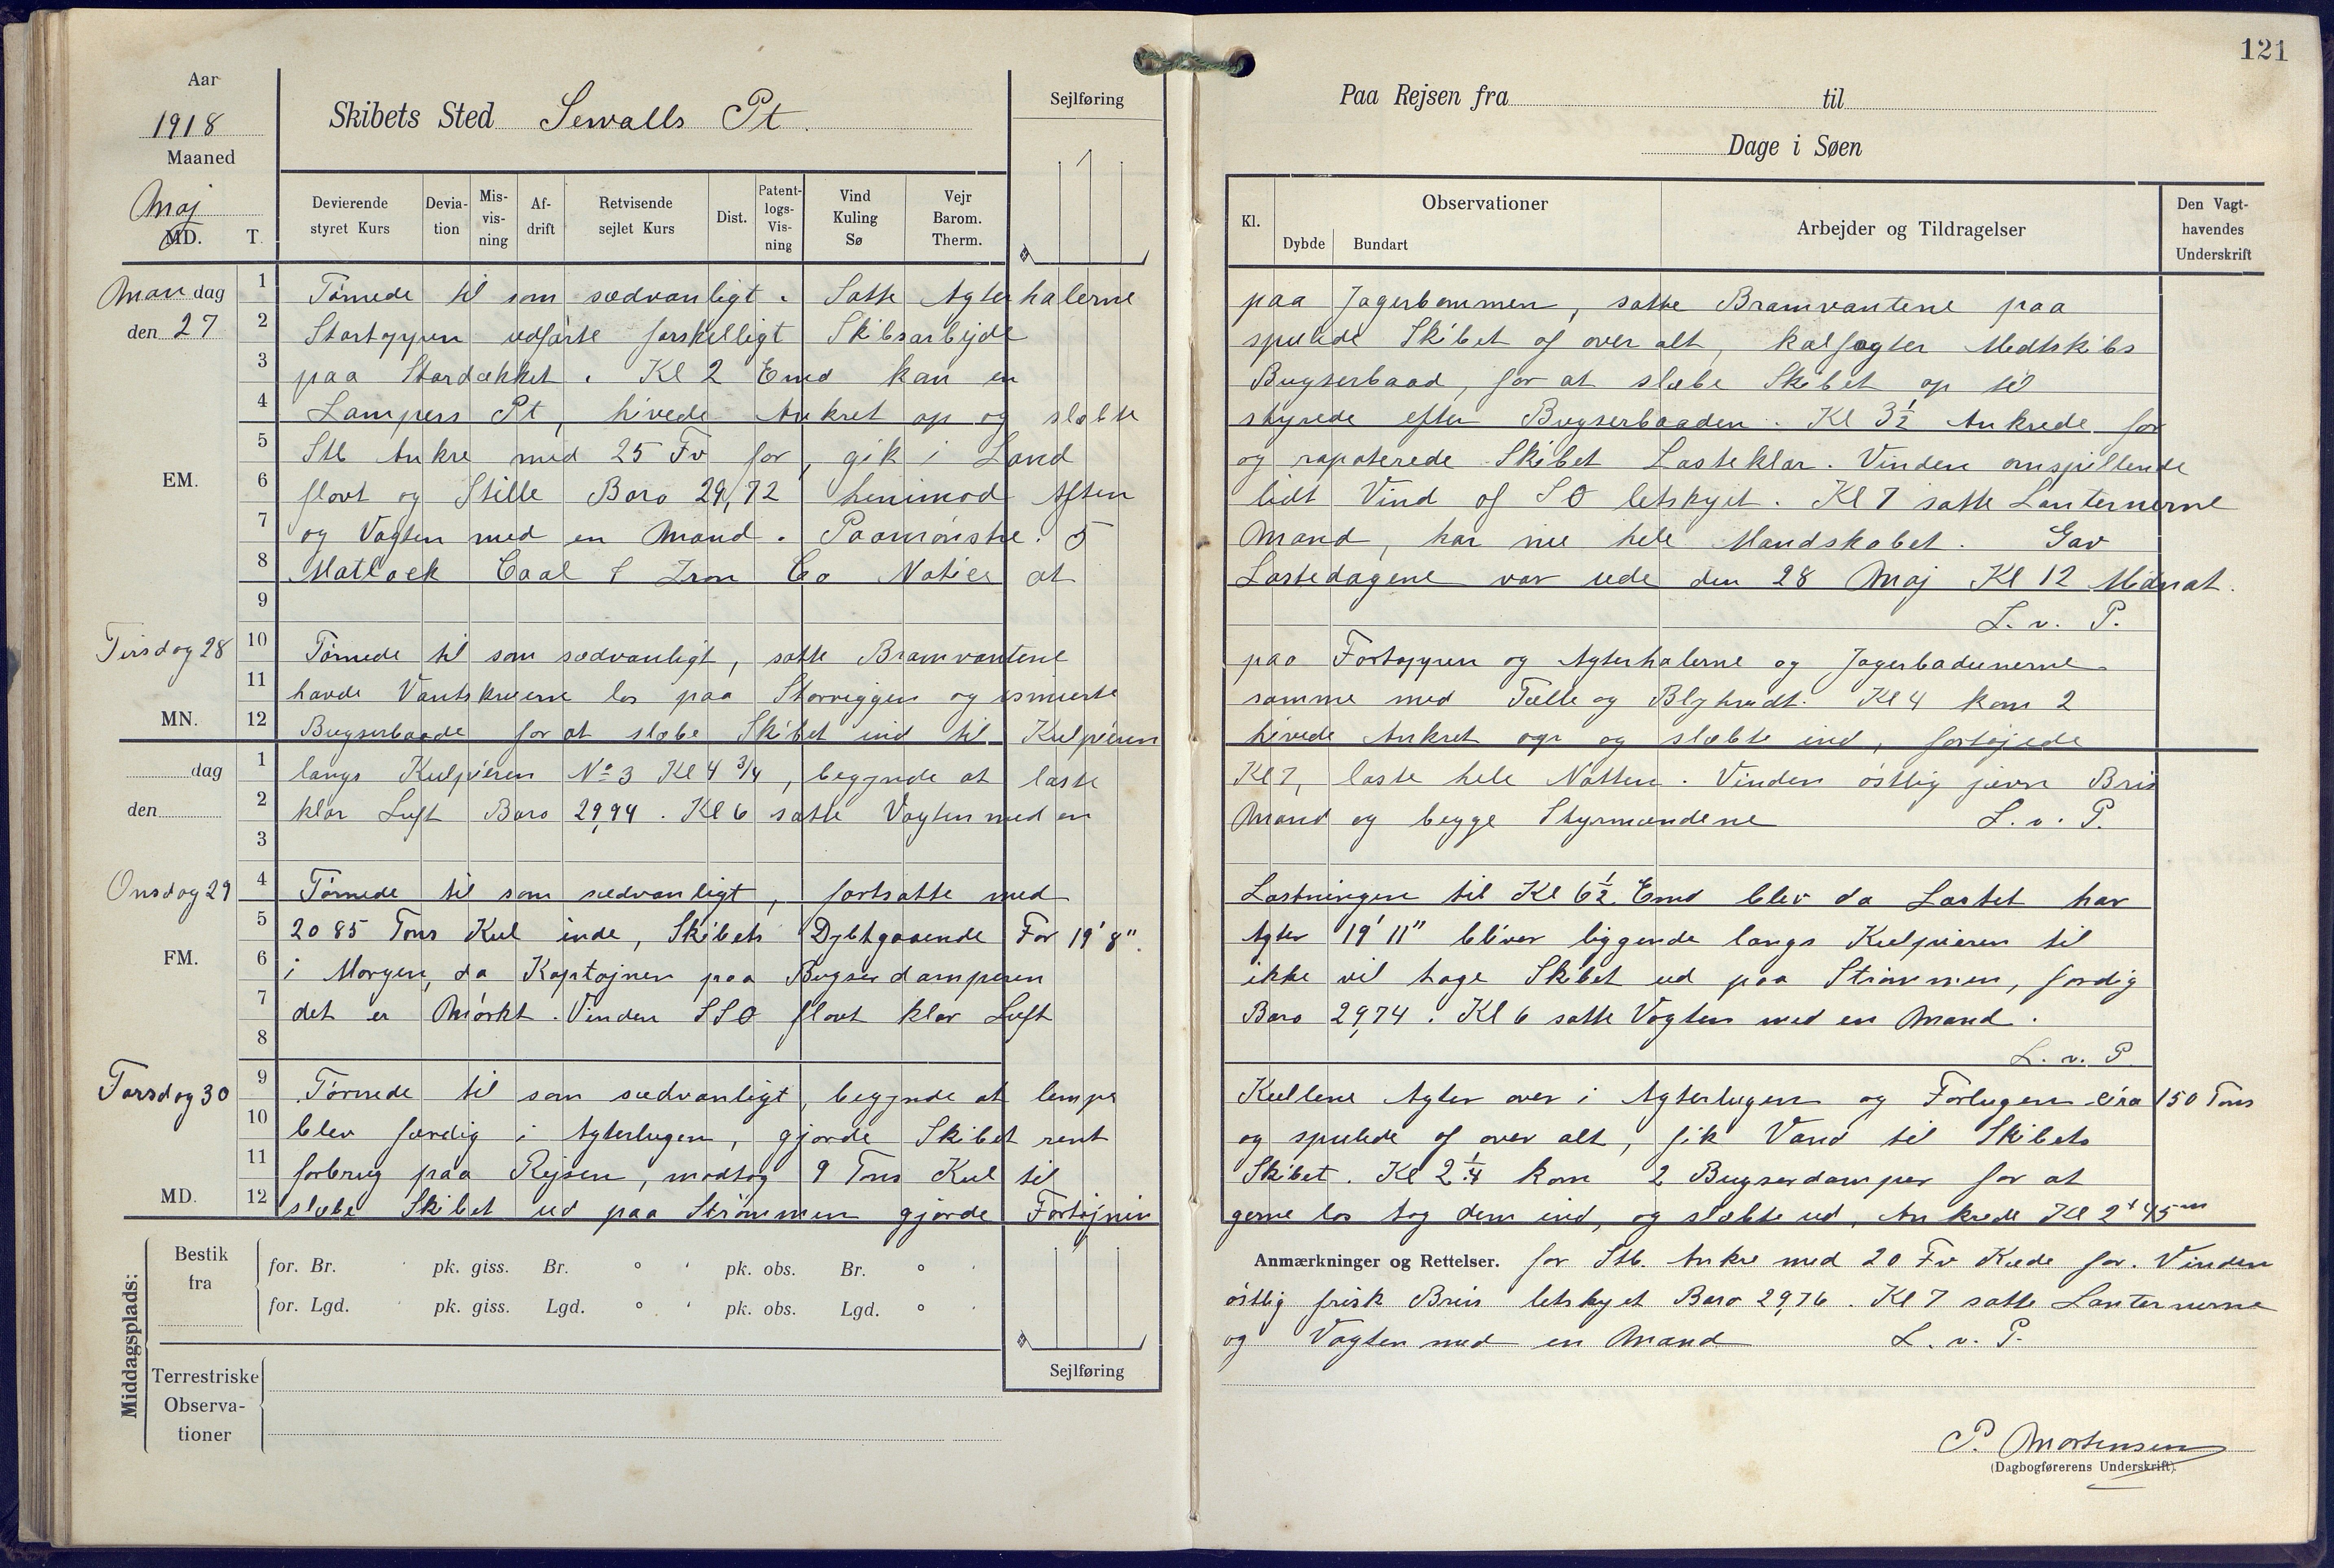 121
Aar
1918
Maaned
Maj
MD. T.
Skibets Sted Sewalls Pt.
Sejlføring
Paa Rejsen fra til
Dage i Søen
Devierende styret Kurs
Devia-tion
Mis-vis-ning
Af-drift
Retvisende sejlet Kurs
Dist.
Patent-logs-Vis-ning
Vind Kuling Sø
Vejr Barom. Therm.
Kl.
Observationer
Dybde Bundart
Arbejder og Tildragelser
Den Vagt-havendes Underskrift
Mandag den 27
1 Tørnede til som sædvanligt. Satte Agterhalerne paa Jagerbommen, satte Bramvantene paa
2 Stortoppen udførte forskelligt Skibsarbejde spulede Skibet af over alt, kalfagter Medtskibs
3 paa Stordækket. Kl 2 Emd kom en Bugserbaad, for at slæbe Skibet op til
4 Lampers Pt, hivede Ankret op og slæbte styrede efter Bugserbaaden. Kl 3½ Ankrede for
5 Stb Ankre med 25 Fv for, gik i Land og rapoterede Skibet Lasteklar. Vinden omspillende
EM.
6 flovt og Stille Baro 29,72 henimod Aften lidt Vind af SO letskyet. Kl 7 satte Lanternerne
7 og Vagten med en Mand. Paamønstre. 5 Mand, har nu hele Mandskabet. Gav
8 Matlack Coal & Iron Co Notice at Lastedagene var ude den 28 Maj Kl 12 Midnat.
9 L. v. P.
Tirsdag 28
10 Tørnede til som sædvanligt, satte Bramvantene paa Fortoppen og Agterhalerne og Jagerbadunerne
11 havde Vantskruerne los paa Storriggen og smurte samme med Tælle og Blyhvidt. Kl 4 kom 2
MN.
12 Bugserbaade for at slæbe Skibet ind til Kulpieren hivede Ankret op og slæbte ind, fortøjede
dag
1 langs Kulpieren No 3 Kl 4 3/4, begynde at laste Kl 7, laste hele Natten. Vinden østlig jævn Bris
den
2 klar Luft Baro 29,94. Kl 6 satte Vagten med en Mand og begge Styrmændene L. v. P.
3
Onsdag 29
4 Tørnede til som sædvanligt, fortsatte med Lastningen til Kl 6½ Emd blev da Lastet har
5 2085 Tons Kul inde, Skibets Dybtgaaende For 19' 8". Agter 19' 11" bliver liggende langs Kulpieren til
FM.
6 i Morgen, da Kaptajnen paa Bugserdamperen ikke vil tage Skibet ud paa Strømmen, fordig
7 det er Mørkt. Vinden SSO flovt klar Luft Baro 29,74. Kl 6 satte Vagten med en Mand.
8 L. v. P
Torsdag 30
9 Tørnede til som sædvanligt, begynde at lempe Kullene Agter over i Agterlugen og Forlugen cira 150 Tons
10 blev færdig i Agterlugen, gjorde Skibet rent og spulede af over alt, fik Vand til Skibets
11 forbrug paa Rejsen, modtog 9 Tons Kul til Skibet. Kl 2¼ kom 2 Bugserdamper for at
MD.
12 slæbe Skibet ud paa Strømmen gjorde Fortøjnin gerne los tog dem ind, og slæbte ud, Ankrede Kl 2t 45m
Anmærkninger og Rettelser. for Stb. Ankre med 20 Fv Kæde for. Vinden
østlig frisk Bris letskyet Baro 29,76. Kl 7 satte Lanternerne
og Vagten med en Mand L. v. P.
Middagsplads:
Bestik fra
for. Br. ' pk. giss. Br. ° ' pk. obs. Br. ° '
for. Lgd. ' pk. giss. Lgd. ° ' pk. obs. Lgd. ° '
Sejlføring
Terrestriske Observa-tioner
P. Mortensen
(Dagbogførerens Underskrift).